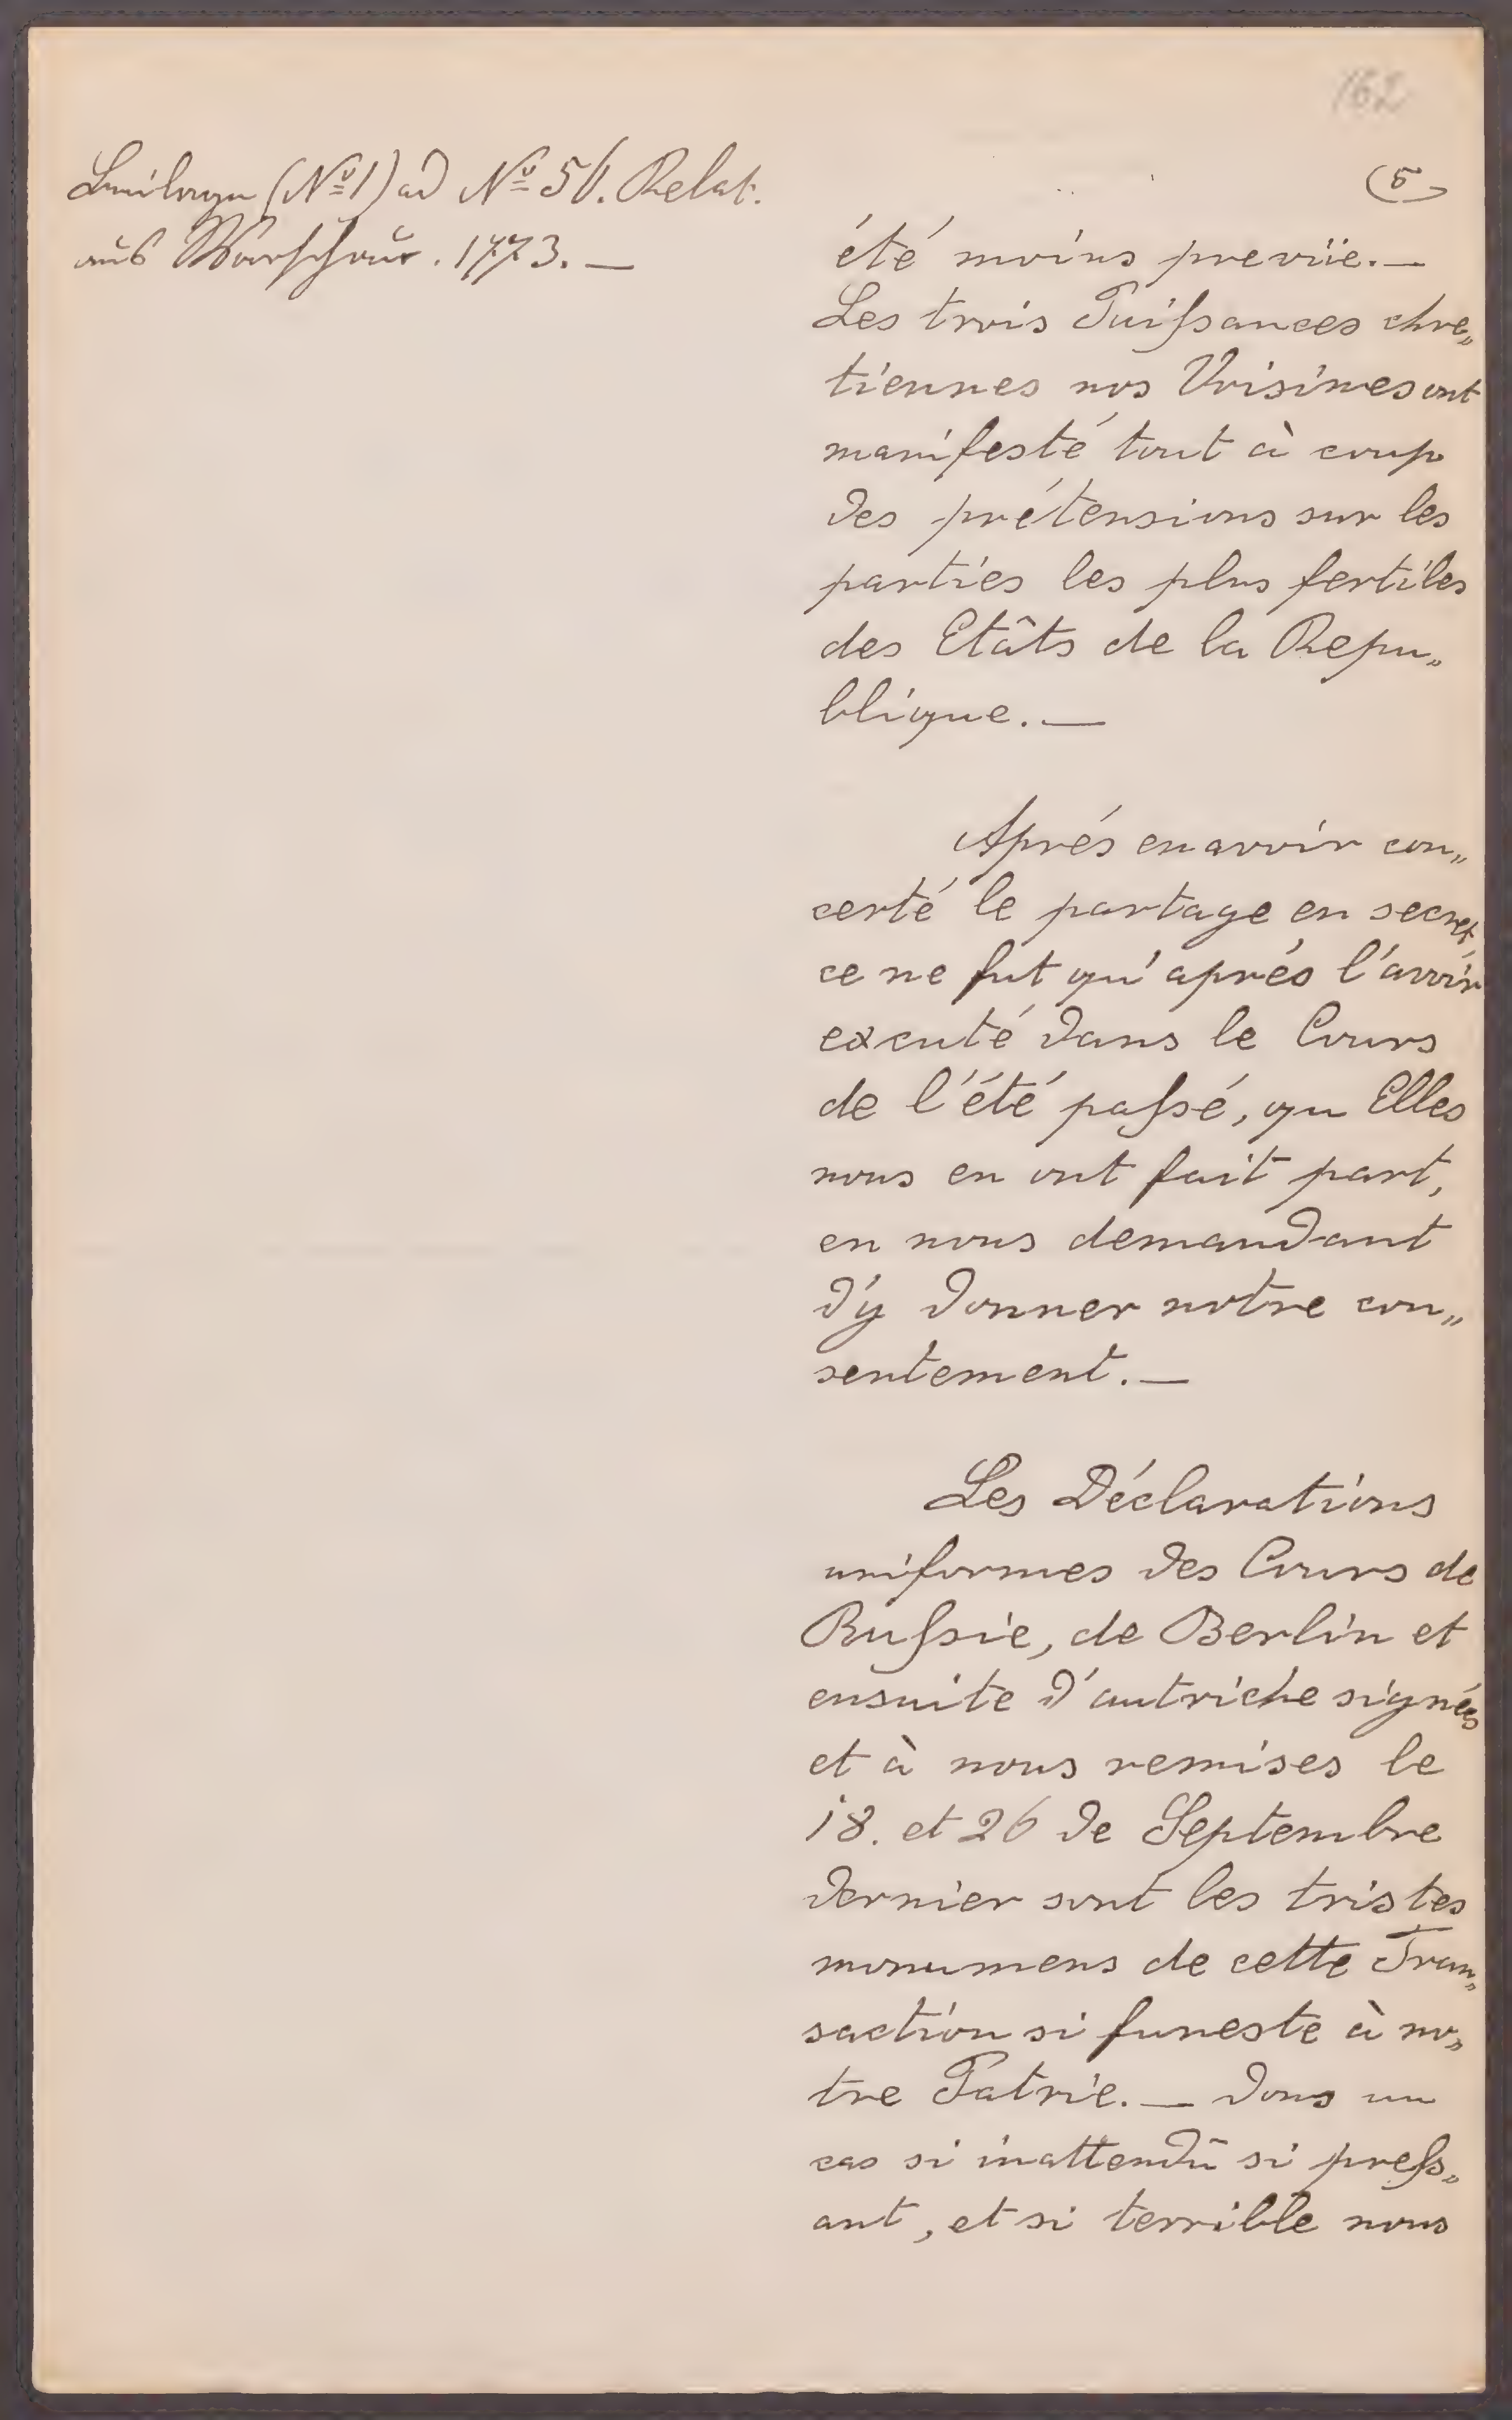 162
Beilage (No 1) ad No 56. Relat.
aus Warschau. 1773. —
(5)
été moins previie. —
Les trois Puissances chre„
tiennes nos Voisines ont
manifesté tout à coup
des prétensions sur les
parties les plus fertiles
des Etâts de la Repu„
blique. —
Aprés en avoir con„
certé le partage en secret,
ce ne fut qu'aprés l'avoir
executé dans le Cours
de l'été passé, qu Elles
nous en ont fait part,
en nous demandant
d'y donner notre con„
sentement. —
Les Déclarations
uniformes des Cours de
Russie, de Berlin et
ensuite d'autriche signées
et à nous remises le
18. et 26 de Septembre
dernier sont les tristes
monumens de cette Tran„
saction si funeste à no„
tre Patrie. — Dans un
cas si inattendû si press„
ant, et si terrible nous